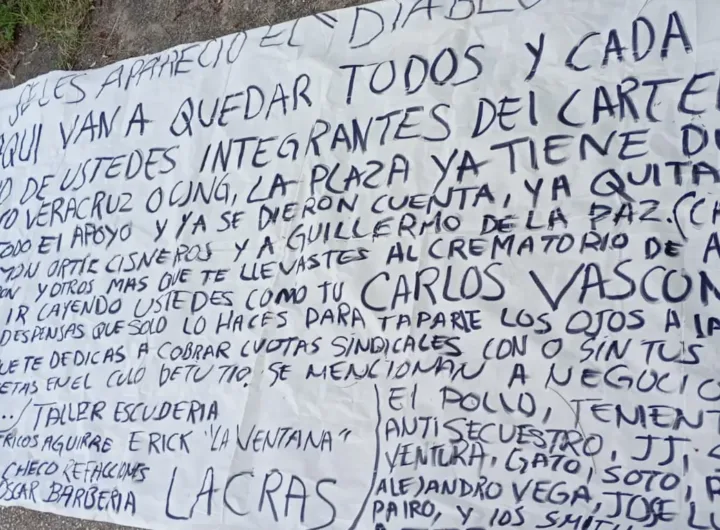 SE LES APARECIO EL "DIABLO
AQUI VAN A QUEDAR TODOS Y CADA
DE USTEDES INTEGRANTES DEL CARTE
VERACRUZ O CJNG, LA PLAZA YA TIENE DU
TODO El APOYO y YA SE DIERON CUENTA, YA QUITA
MON ORTIZ CISNEROS Y A GUILLERMO DE LA PAZ. (
ON Y OTROS MAS QUE TE LLEVASTES AL CREMATORIO DE A
IR CAYENDO USTEDES COMO TU CARLOS VASCON
DESPENSAS QUE SOLO LO HACES PARA TAPARTE LOS OJOS A LA
UE TE DEDICAS A COBRAR CUOTAS SINDICALES CON O SIN TUS
ETAS EN EL CULO DE TU TIO. SE MENCIONAN A NEGOCIO
../TALLER ESCUDERIA
RICOS AGUIRRE ERICK "LA VENTANA"
CHECO REFACCIONES
OSCAR BARBERIA LACRAS
El POLLO, TENIENT
ANTISECUESTRO, JJ.
VENTURA, GATO, SOTO,
ALEJANDRO VEGA, JOSE LU
PAIRO, Y lOS